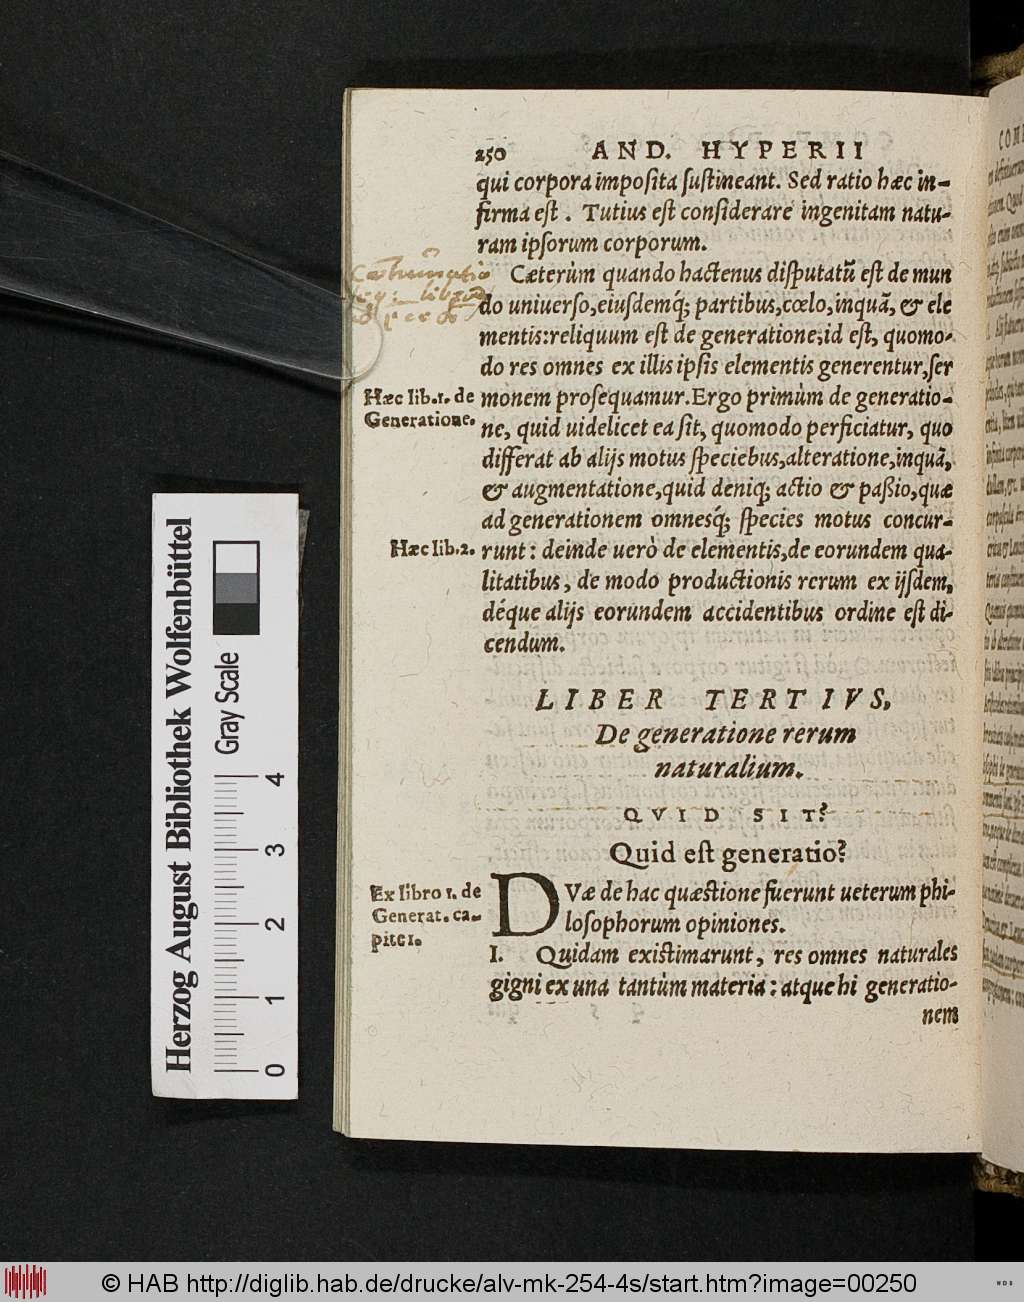 250 AND. HYPERII
qui corpora imposita sustineant. Sed ratio hæc in-
firma est. Tutius est considerare ingenitam natu-
ram ipsorum corporum.
Cæterùm quando hactenus disputatũ est de mun
do uniuerso, eiusdemq́; partibus, cœlo, inquã, & ele
mentis: reliquum est de generatione, id est, quomo-
do res omnes ex illis ipsis elementis generentur, ser
Hæc lib. 1. de
Generatione.
monem prosequamur. Ergo primùm de generatio-
ne, quid uidelicet ea sit, quomodo perficiatur, quo
differat ab alijs motus speciebus, alteratione, inquã,
& augmentatione, quid deniq; actio & paßio, quæ
ad generationem omnesq́; species motus concur-
Hæc lib. 2.
runt: deinde uerò de elementis, de eorundem qua-
litatibus, de modo productionis rerum ex ijsdem,
déque alijs eorundem accidentibus ordine est di-
cendum.
LIBER TERTIVS,
De generatione rerum
naturalium.
QVID SIT?
Quid est generatio?
Ex libro 1. de
Generat. ca-
pite 1.
DVæ de hac quæstione fuerunt ueterum phi-
losophorum opiniones.
I. Quidam existimarunt, res omnes naturales
gigni ex una tantùm materia: atque hi generatio-
nem
Herzog August Bibliothek Wolfenbüttel
Gray Scale
0 1 2 3 4
© HAB http://diglib.hab.de/drucke/alv-mk-254-4s/start.htm?image=00250